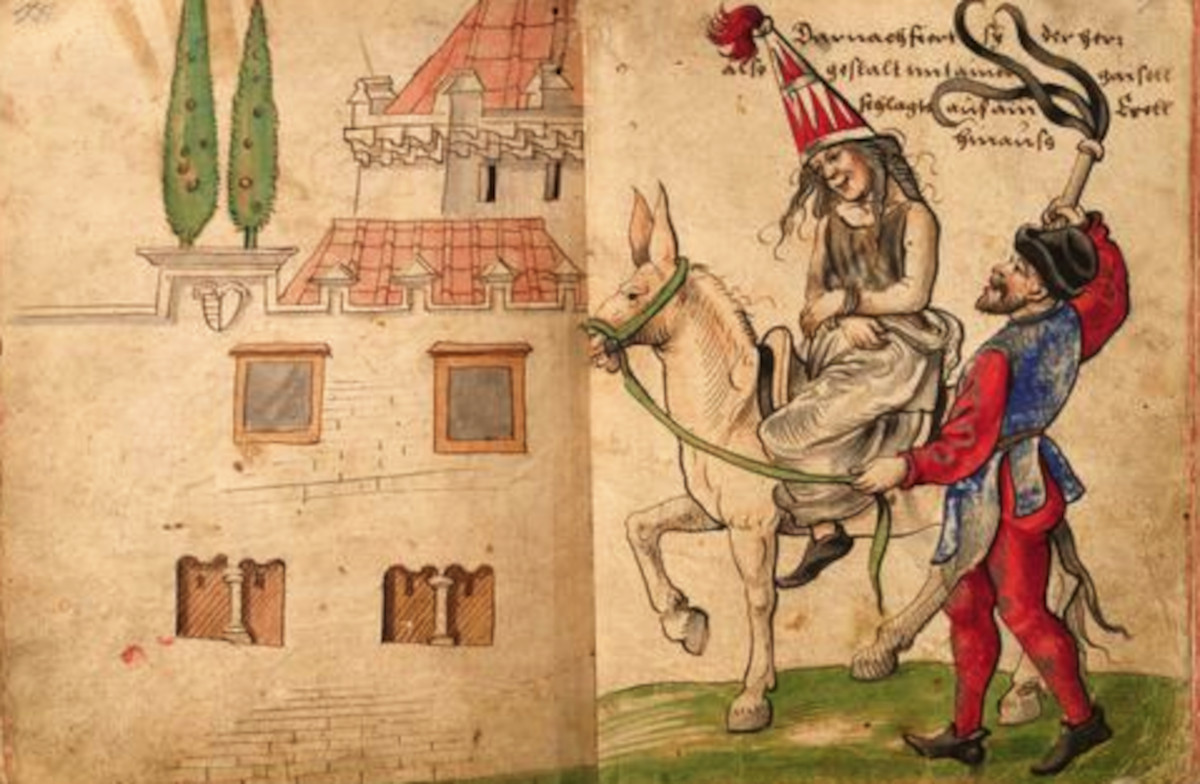 Darnach fiert sy der her
also gestalt mit ainer gaisell
schlagt auf ain Esell
hinauss